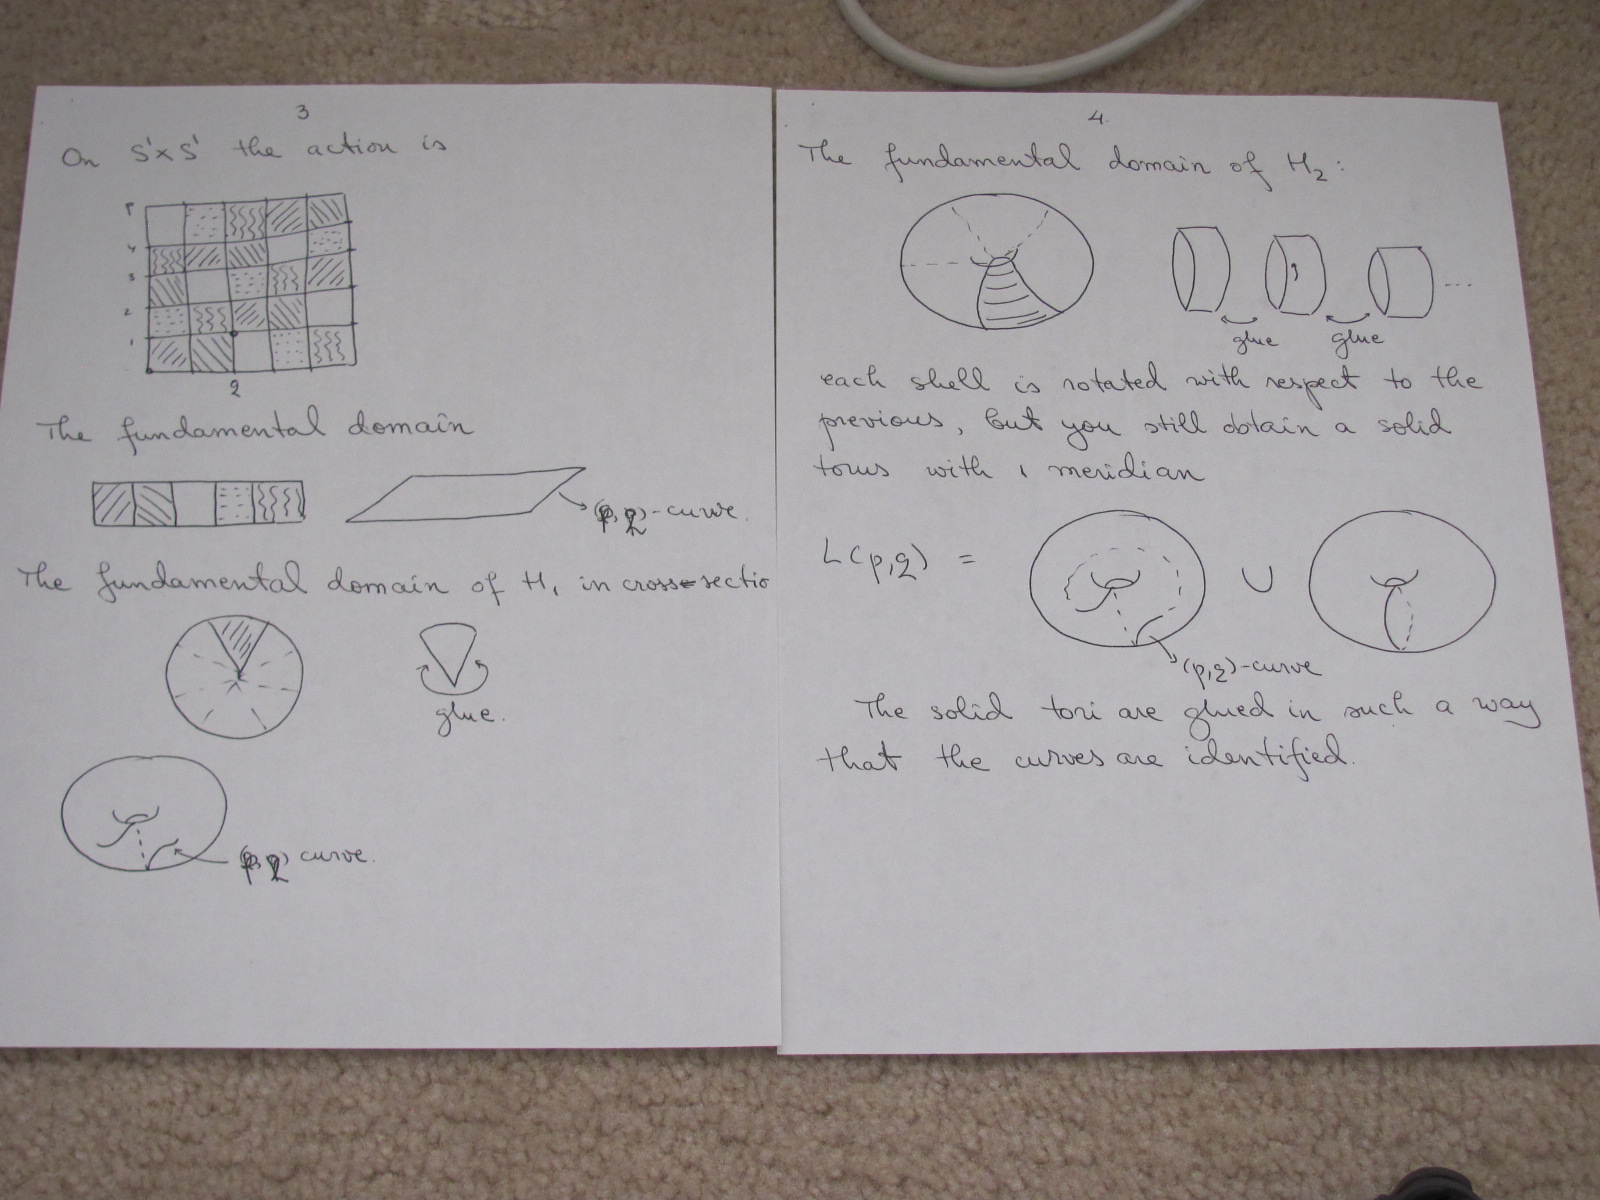 3
On S¹×S¹ the action is
p
4
3
2
1
q
The fundamental domain
(p,q)-curve.
The fundamental domain of H₁ in cross-sectio
glue.
(p,q) curve.
4.
The fundamental domain of H₂:
...
glue glue
each shell is rotated with respect to the
previous, but you still obtain a solid
torus with 1 meridian
L(p,q) = ∪
(p,q)-curve
The solid tori are glued in such a way
that the curves are identified.